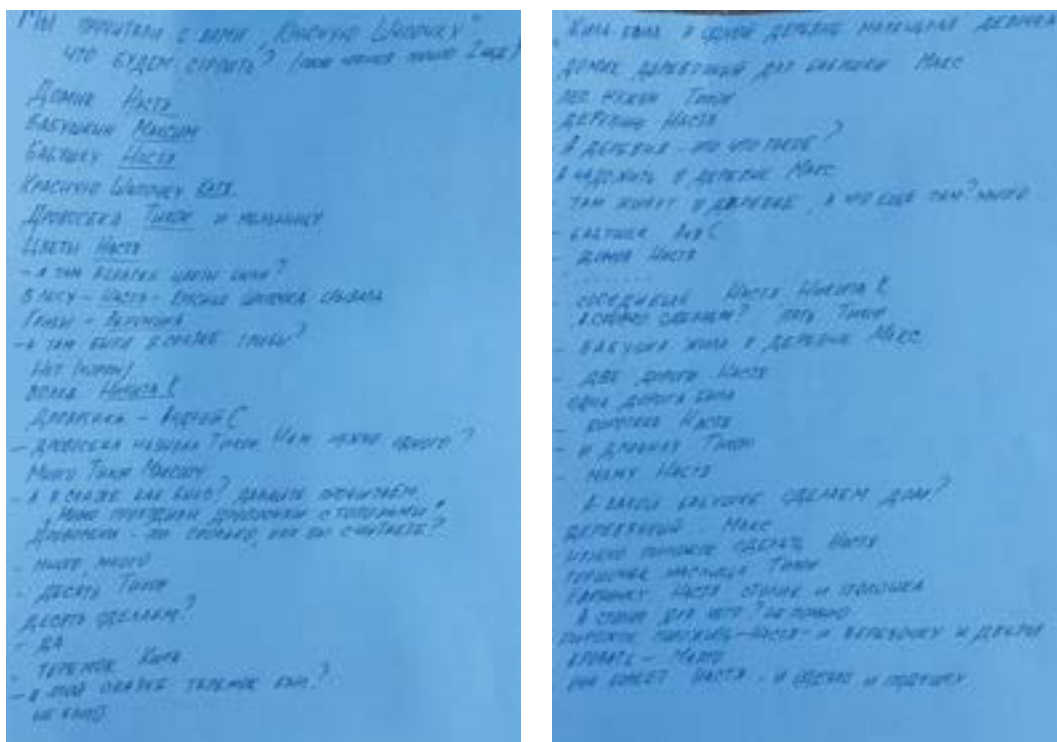 Мы прочитали с вами "Красную Шапочку"
что будем строить?
Домик Настя
Бабушкин Максим
Бабушку Настя
Красную Шапочку Катя
Дровосека Тихон и мельницу
Цветы Настя
- А там в сказке цветы были?
В лесу - Настя - Красная Шапочка срывала
Грибы - Вероника
- А там были в сказке грибы?
Нет (хором)
Волка Никита К
Дровосека - Андрей С
- Дровосека назвал Тихон. Нам нужно одного?
Много Тихон Максим
- А в сказке как было? Давайте прочитаем
"мимо проходили дровосеки с топорами"
Дровосеки - это сколько, как вы считаете?
- много много
- Десять Тихон
Десять сделаем?
- Да
Теремок Кира
- В этой сказке теремок был?
не было
"Жила-была в одной деревне маленькая девочка
Домик деревянный для бабушки Макс
Лес нужен Тихон
Деревню Настя
А деревня - это что такое?
А надо жить в деревне Макс
- Там живут в деревне, а что еще там? много
- бабушек
- домов Настя
- соседний Настя Никита К
А сколько сделаем? пять Тихон
- Бабушка жила в деревне Макс
- две дороги Настя
одна дорога была
- короткая Настя
- и длинная Тихон
- маму Настя
А какой бабушке сделаем дом?
Деревянный - Макс
Нужно пирожок сделать Настя
горшочек маслица Тихон
Настя столик и
А столик для чего?
пирожок положить - Настя - и веревочку и дверь
кровать -
Настя, и одеяло и подушку